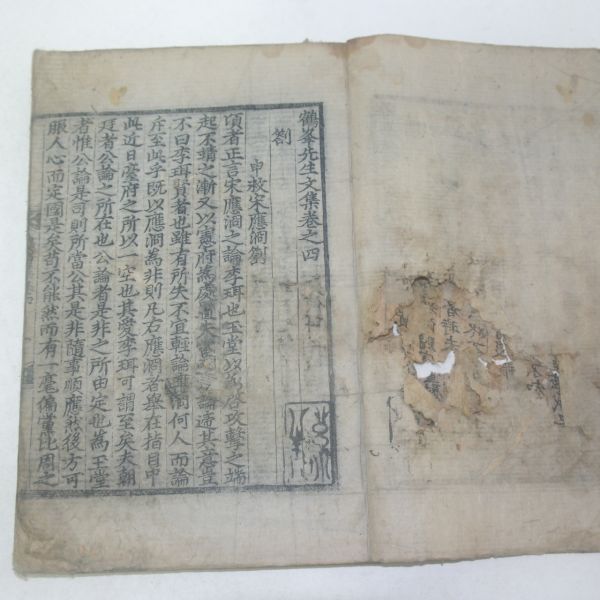 鶴峯先生文集卷之四
劄
申救宋應漑劄
頃者正言宋應泂之論李珥也玉堂以爲啓攻擊之端
起不靖之漸又以憲府爲處置失當 論遞其臺
不曰李珥賢者也雖有所失不宜輕論 泂何人而論
斥至此乎旣以應泂爲非則凡右應泂者舉在指目中
此近日臺府之所以一空也其愛李珥可謂至矣夫朝
廷者公論之所在也公論者是非之所由定也爲玉堂
者惟公論是司則所當公其是非隨事順應然後方可
服人心而定國是矣苟不能然而有一毫偏黨比周之